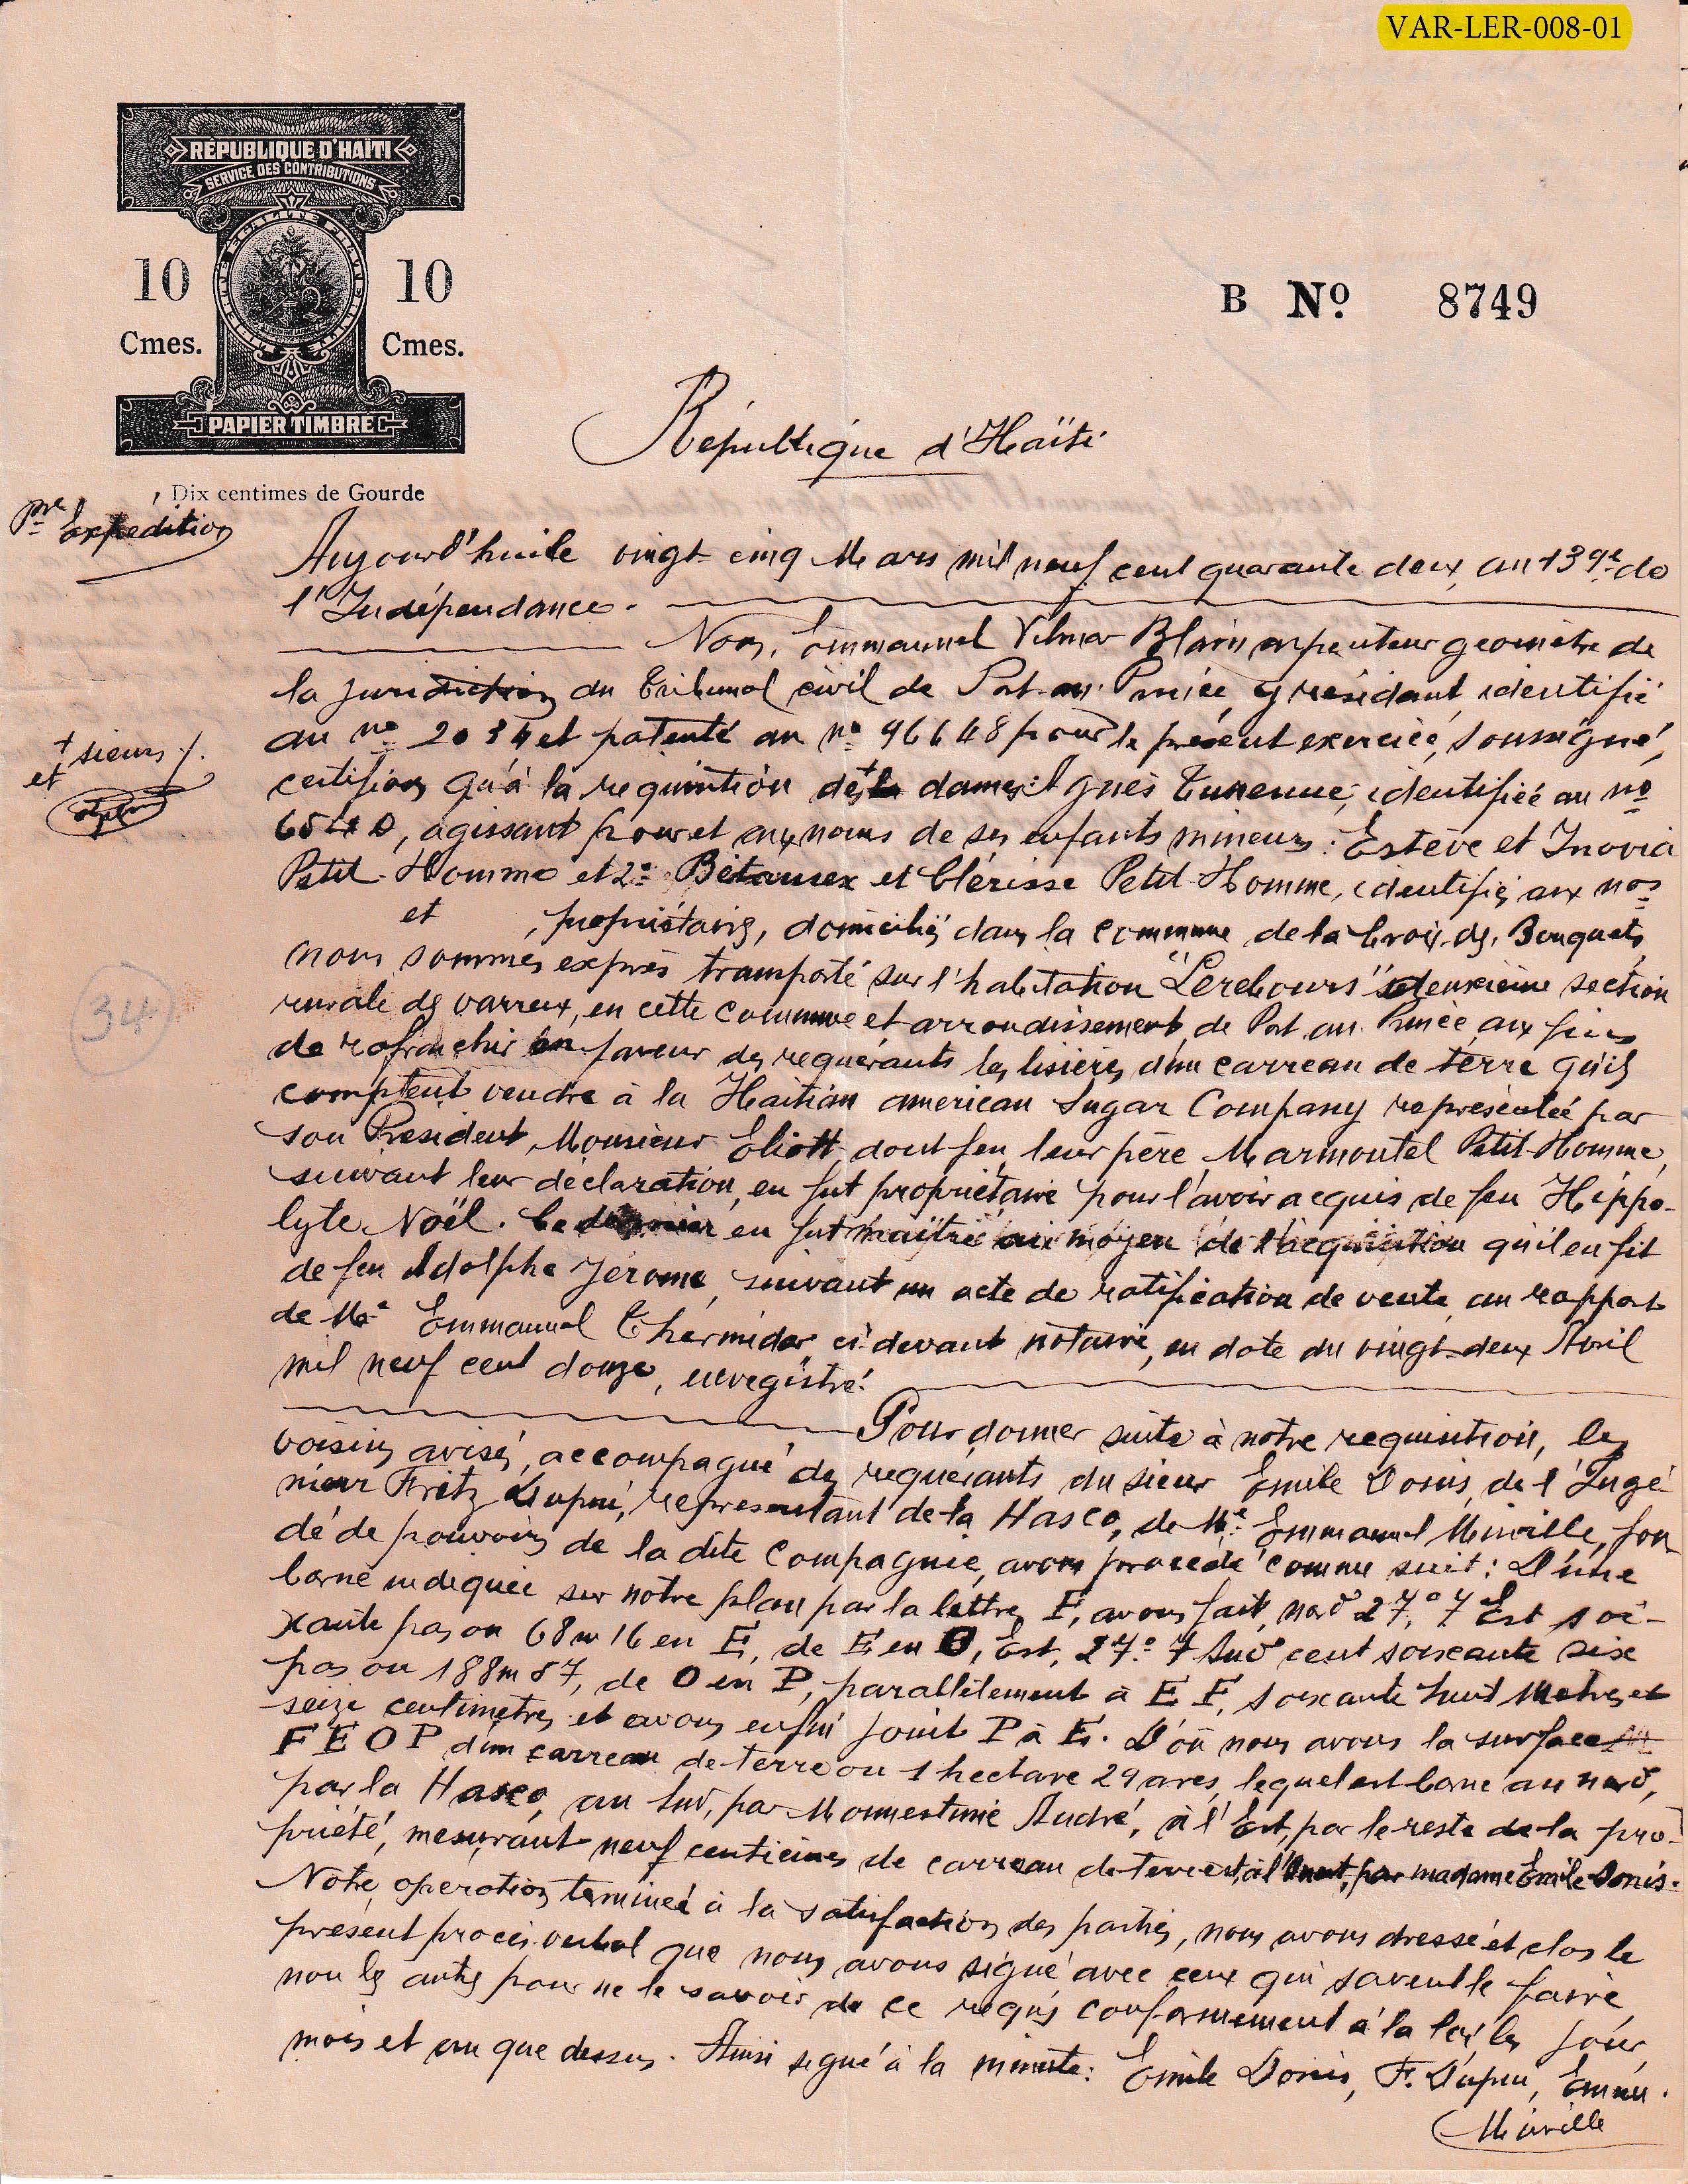 VAR-LER-008-01
RÉPUBLIQUE D'HAÏTI
SERVICE DES CONTRIBUTIONS
10 10
Cmes. Cmes.
PAPIER TIMBRÉ
Dix centimes de Gourde
B No. 8749
République d'Haïti
pre Expédition
Aujourd'hui le vingt-cinq Mars mil neuf cent quarante deux, an 139e de
l'Indépendance.
Nous, Emmanuel Vilmar Blain arpenteur geomètre de
la juridiction du Tribunal civil de Port-au-Prince, y résidant, identifié
au no 2034 et patenté au no 96648 pour le présent exercice, soussigné,
+ sieurs /.
et
certifions qu'à la requisition des + dames: Agnès Turenne, identifiée au no
6540, agissant pour et aux noms de ses enfants mineurs: Estève et Inovia
Petit-Homme et 2o et Clérisse Petit-Homme, identifiés aux nos
et , propriétaires, domiciliés dans la commune de la Croix-des-Bouquets,
nous sommes exprès transporté sur l'habitation "Lerebours" deuxième section
34
rurale des varreux, en cette commune et arrondissement de Port-au-Prince aux fins
de rafraichir en faveur des requérants les lisières d'un carreau de terre qu'ils
comptent vendre à la Haïtian american Sugar Company représentée par
son Président, Monsieur Eliott, dont feu leur père Marmontel Petit-Homme,
suivant leur déclaration, en fut propriétaire pour l'avoir acquis de feu Hippo-
lyte Noël. Ce dernier en fut maître au moyen de l'acquisition qu'il en fit
de feu Adolphe Jérome, suivant un acte de ratification de vente, au rapport
de Me Emmanuel Thermidor ci-devant notaire, en date du vingt-deux Avril
mil neuf cent douze, enregistré.
Pour donner suite à notre requisition, les
voisins avisés, accompagné des requérants, du sieur Emile Donis, de l'Ingé-
nieur Fritz Dupuy, représentant de la Hasco, de Me Emmanuel Minville, fon
dé de pouvoirs de la dite Compagnie, avons procédé comme suit: D'une
borne indiquée sur notre plan par la lettre F, avons fait, nord 27.o 7 Est soi-
xante pas ou 68m16 en E, de E en O, Est, 27.o 7 Sud cent soixante six
pas ou 188m87, de O en P, parallèlement à E F, soixante huit Metres et
seize centimetres et avons enfin joint P à F. D'où nous avons la surface
F E O P d'un carreau de terre ou 1 hectare 29 ares, lequel est borné au nord,
par la Hasco, au Sud, par André, à l'Est, par le reste de la pro-
priété, mesurant neuf centièmes de carreau de terre et, à l'Ouest, par madame Emile Donis.
Notre opération terminée à la satisfaction des parties, nous avons dressé et clos le
présent procès-verbal que nous avons signé avec ceux qui savent le faire
non les autres pour ne le savoir de ce requis conformement à la loi, les jour,
mois et an que dessus. Ainsi signé à la minute: Emile Donis, F. Dupuy, Emmu.
Minville